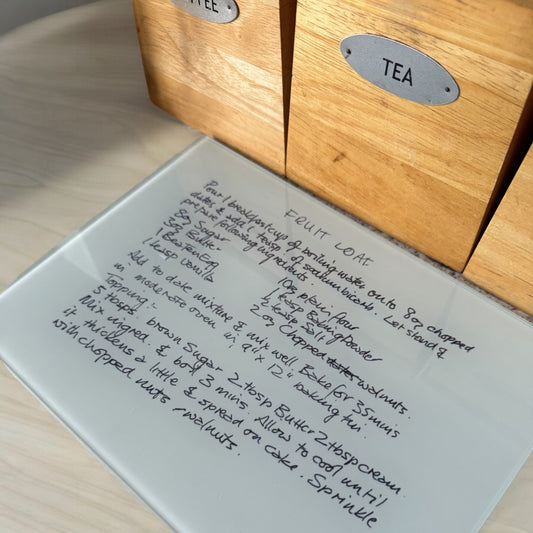 FFEE
TEA
FRUIT LOAF
Pour 1 breakfastcup of boiling water onto 8oz chopped
dates & add 1 teasp of sodium bicarb. Let stand &
prepare following ingredients.
8oz Sugar
3oz Butter
1 Beaten Egg
1 teasp Vanilla
10oz plain flour
1 teasp Baking Powder
½ teasp Salt
2oz Chopped walnuts
Add to date mixture & mix well. Bake for 35 mins
in moderate oven in 9" x 12" baking tin.
Topping:-
5 tbsps brown Sugar 2 tbsp Butter 2 tbsp cream.
Mix ingred. & boil 3 mins. Allow to cool until
it thickens a little & spread on cake. Sprinkle
with chopped nuts - walnuts.